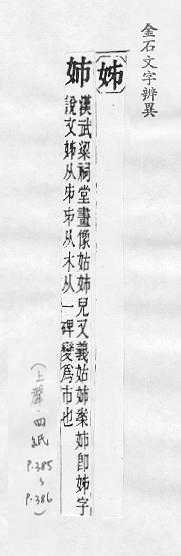 金石文字辨異
姊
姉
漢武梁祠堂畫像姑姉兒又義姑姉案姉即姊字
說文姊从𠂔𠂔从木从一碑變爲市也
(上聲·四紙 P.385~P.386)